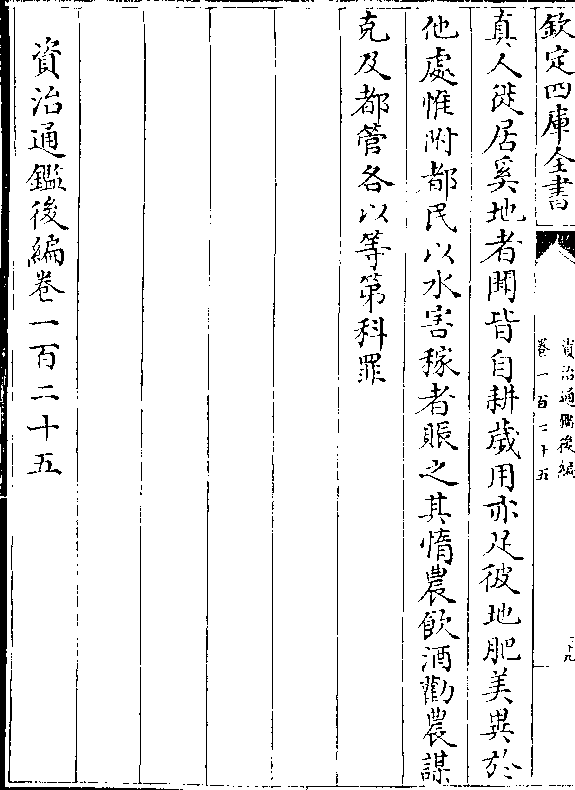 欽定四庫全書
資治通鑑後編
卷一百二十五
十九
真人徙居奚地者聞皆自耕歳用亦足彼地肥美異於
他處惟附都民以水害稼者賑之其惰農飲酒勸農謀
克及都管各以等第科罪
資治通鑑後編卷一百二十五